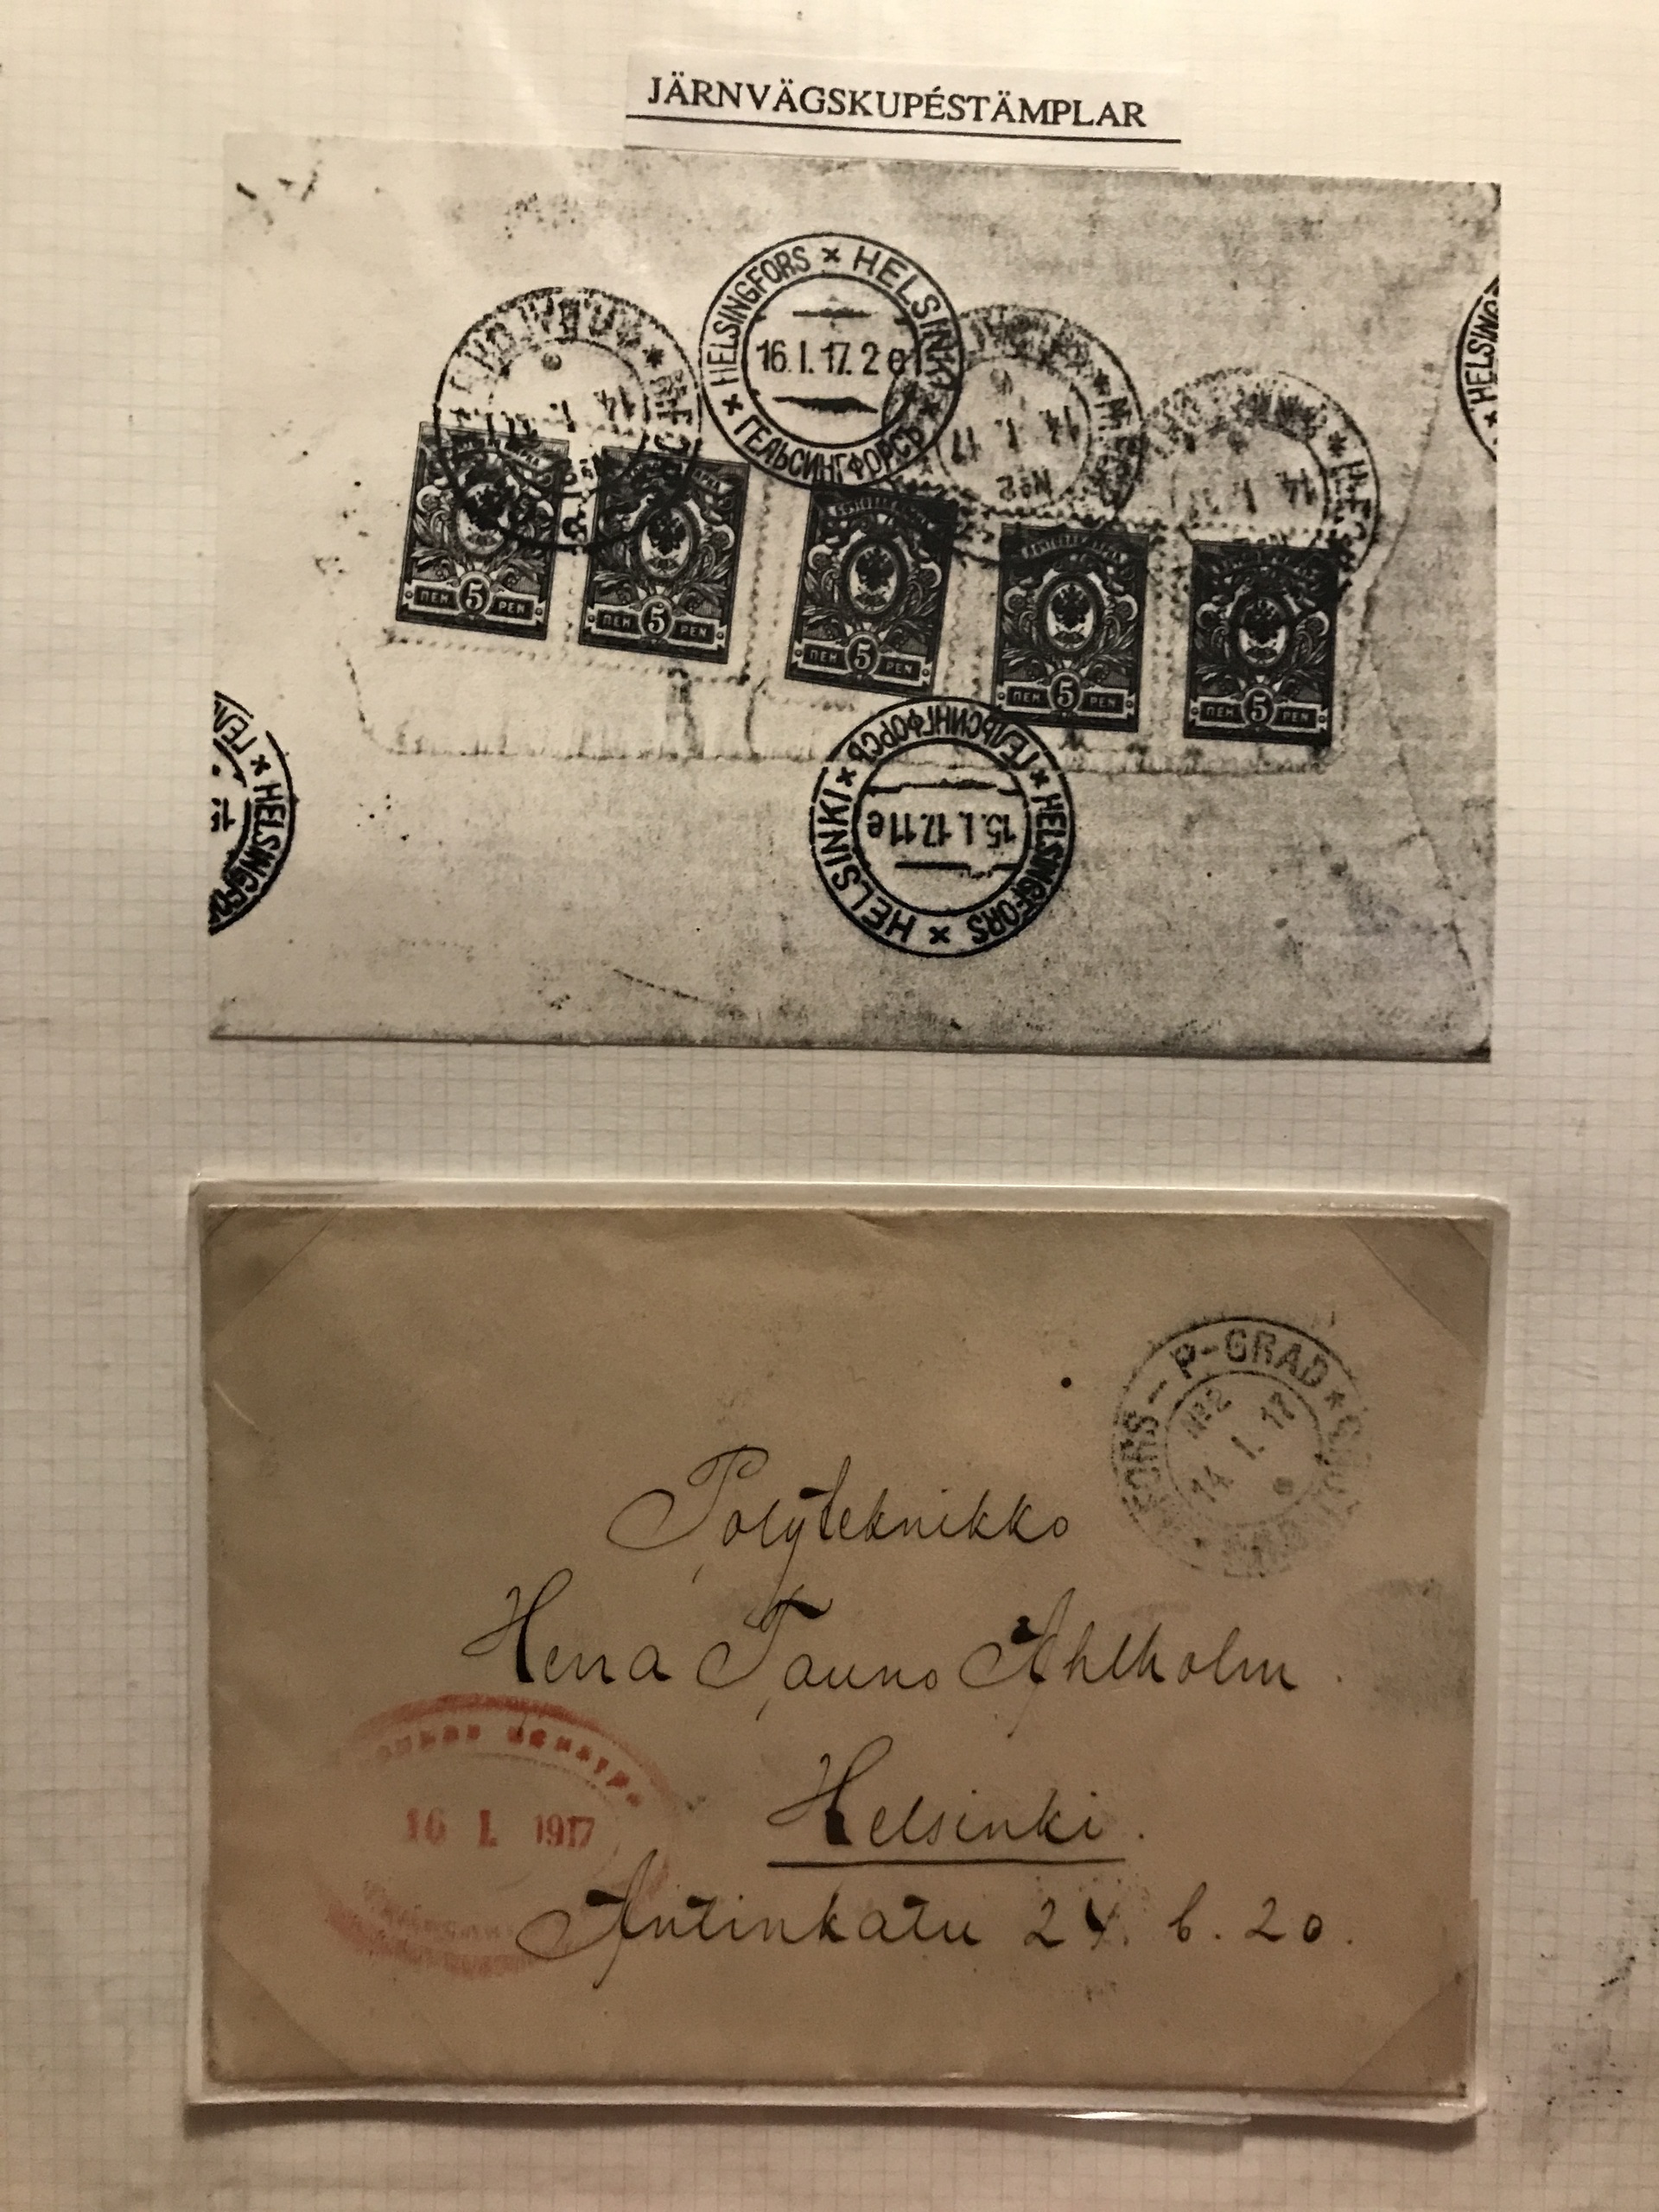 JÄRNVÄGSKUPÉSTÄMPLAR
HELSINGFORS × HELSINKI × ГЕЛЬСИНГФОРСЪ ×
16.I.17.2e
14 I. 17
14 I. 17
№2
14 I.
ПЕН 5 PEN
ПЕН 5 PEN
ПЕН 5 PEN
ПЕН 5 PEN
ПЕН 5 PEN
× HELSINGFORS × HELSINKI × ГЕЛЬСИНГФОРСЪ
15.I.17.11e
× HELSING
× HELSINGFO
P-GRAD *
№2
14 I. 17
Polyteknikko
Herra Tauno Ahlholm.
Helsinki.
16 I. 1917
Antinkatu 24. b. 20.